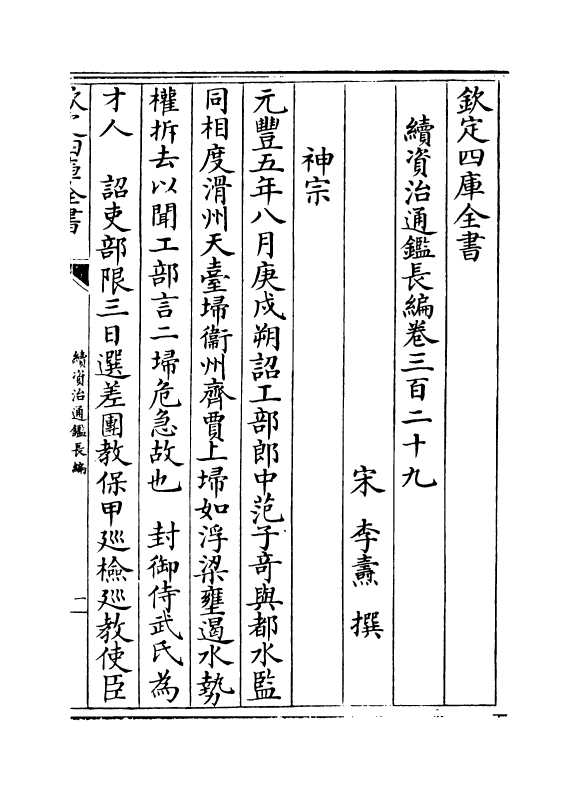 欽定四庫全書
續資治通鑑長編卷三百二十九
宋 李燾 撰
神宗
元豐五年八月庚戌朔詔工部郎中范子竒與都水監
同相度滑州天臺埽衞州齊賈上埽如浮梁壅遏水勢
權拆去以聞工部言二埽危急故也 封御侍武氏為
才人 詔吏部限三日選差團教保甲廵檢廵教使臣
欽定四庫全書
續資治通鑑長編
一